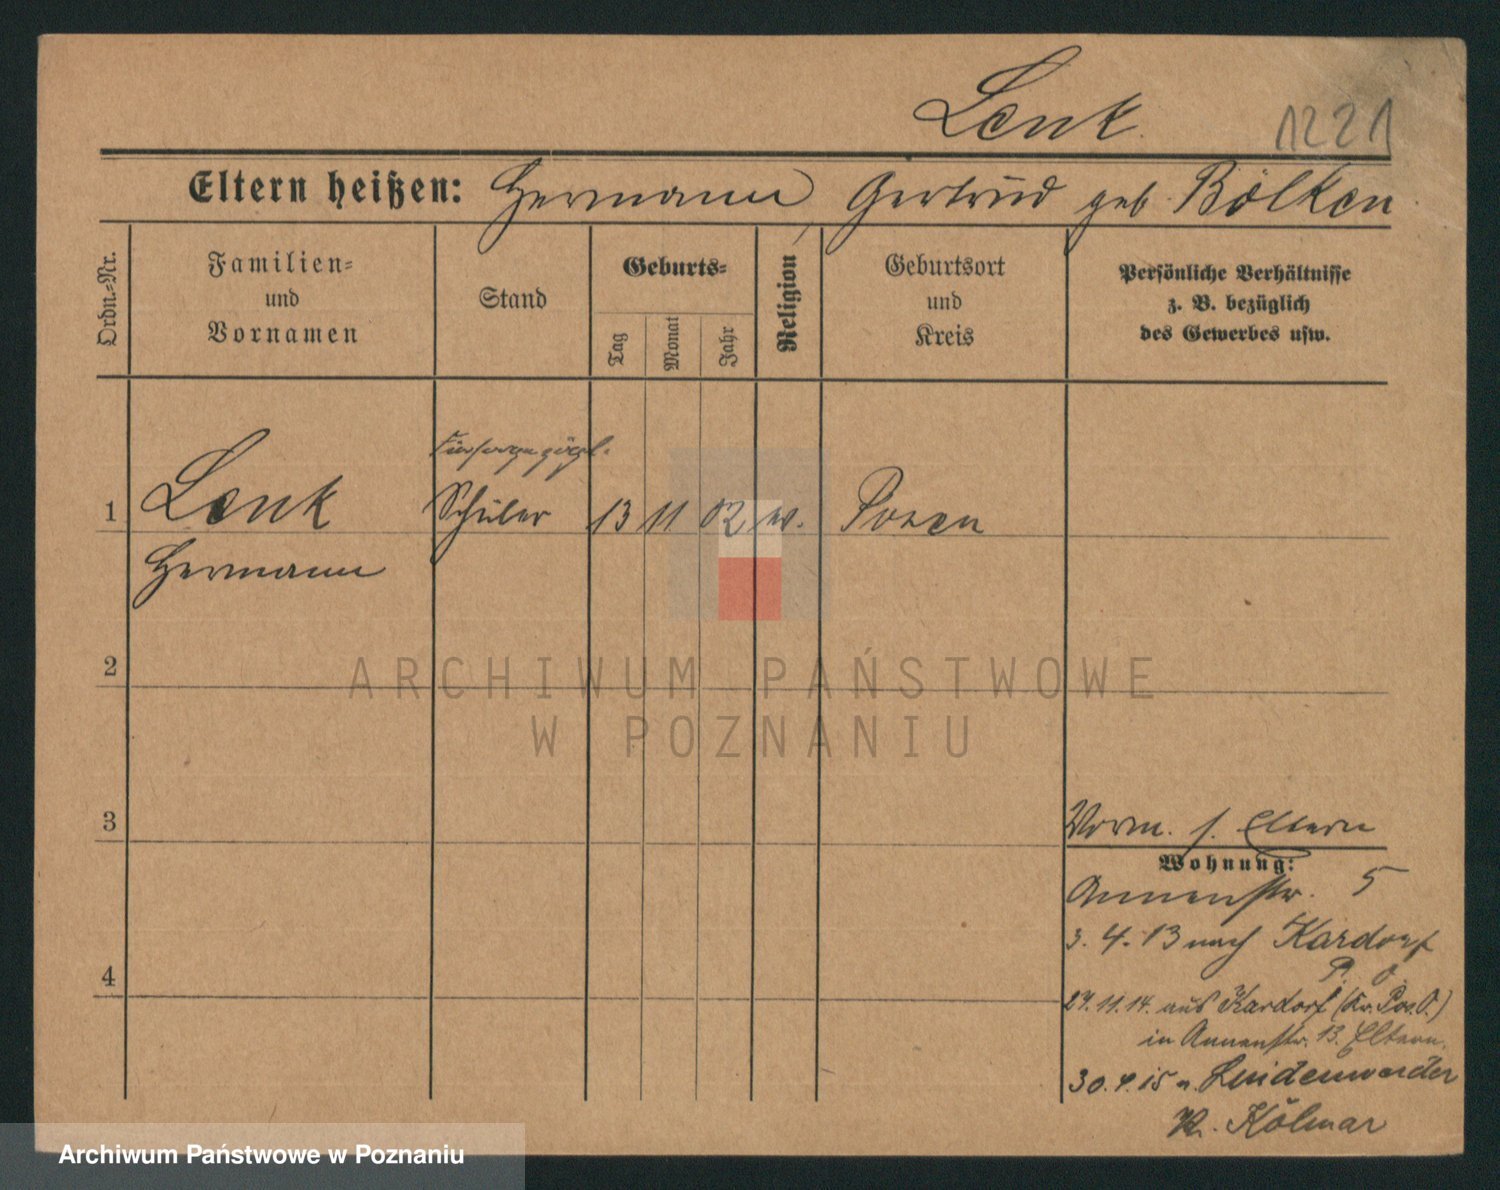 Lenk. 1221
Eltern heißen: Hermann, Gertrud geb. Bölken
Ordn.-Nr.
Familien-
und
Vornamen
Stand
Geburts-
Tag
Monat
Jahr
Religion
Geburtsort
und
Kreis
Persönliche Verhältnisse
z. B. bezüglich
des Gewerbes usw.
Fürsorgezögl.
1 Lenk Schüler 13 11 02 Posen
Hermann
2
3
4
Vorm. s. Eltern
Wohnung:
Annenstr. 5
3.4.13 nach Kardorf
P. O.
27.11.14. aus Kardorf (Kr. Pos. O.)
in Annenstr. 13. Eltern.
30.4.15 n. Lindenwerder
Kr. Kolmar
ARCHIWUM PAŃSTWOWE
W POZNANIU
Archiwum Państwowe w Poznaniu